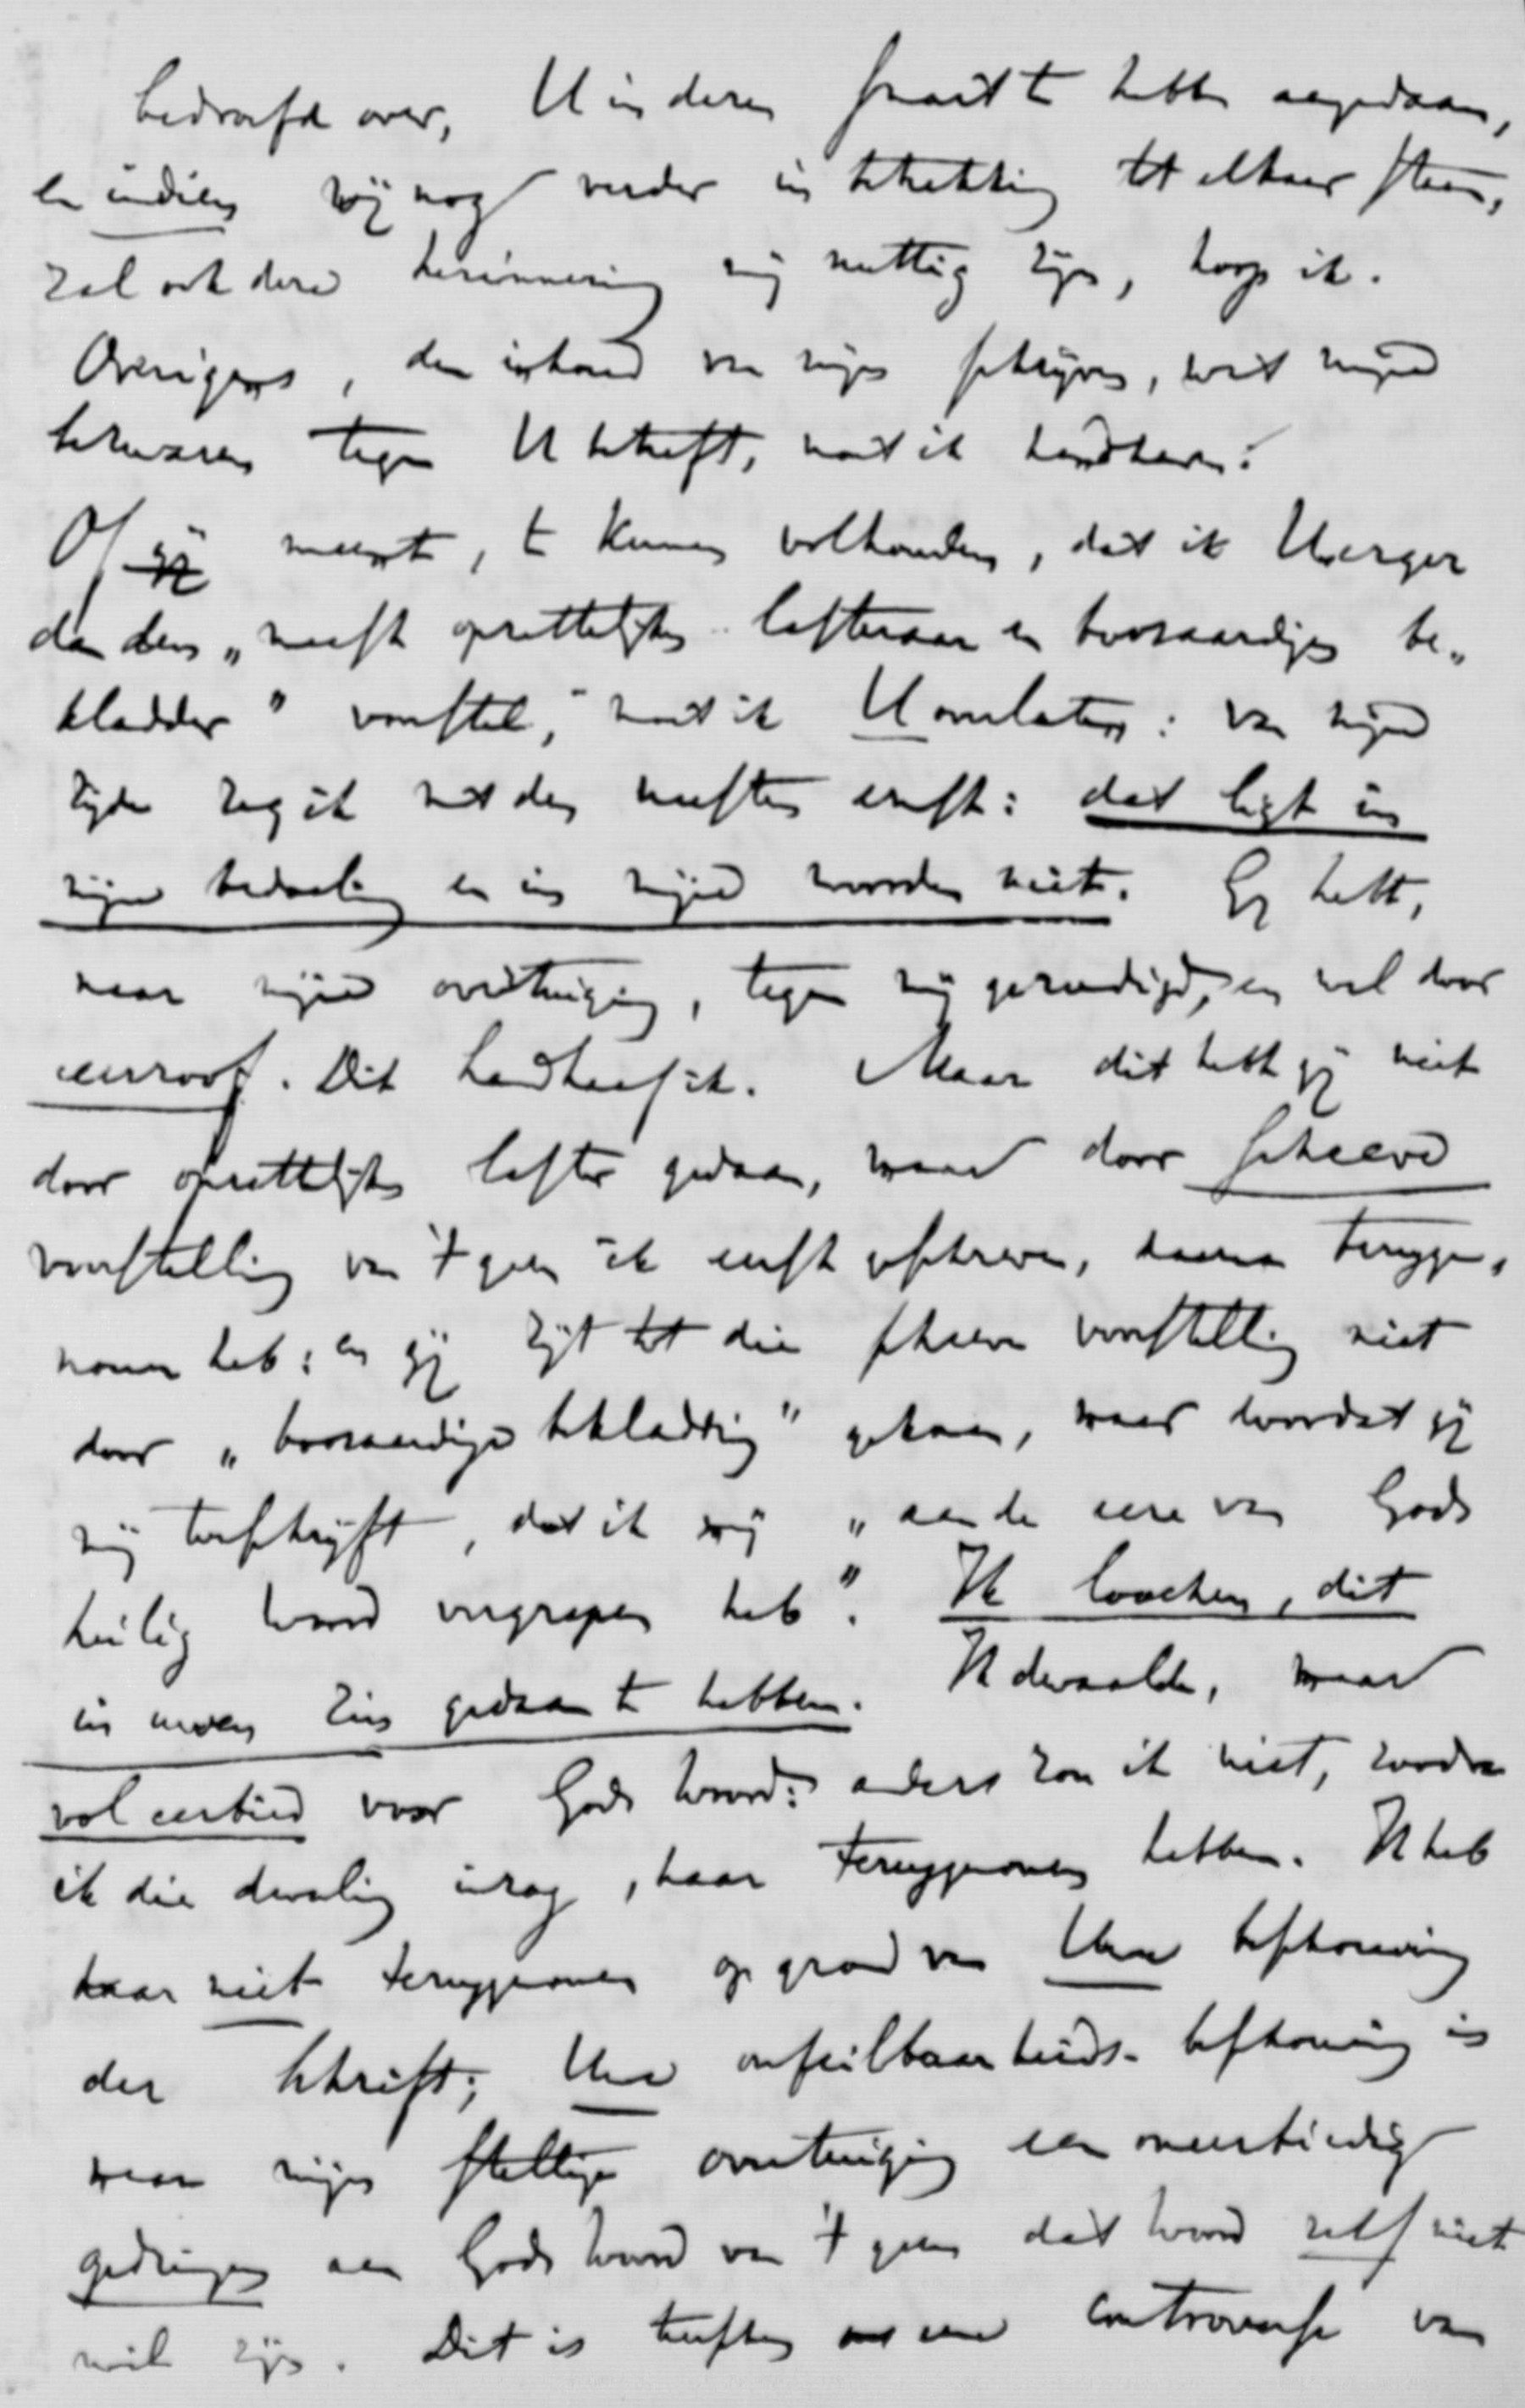 bedroefd over, U in dezen smart te hebben aangedaan,
en indien wij nog verder in betrekking tot elkaar staan,
zal ook deze herinnering mij nuttig zijn, hoop ik.
Overigens, den inhoud van mijn schrijven, wat mijne
bezwaren tegen U betreft, moet ik handhaven.
Of gij meent, te kunnen volhouden, dat ik U erger
dan den „meest opzettelijken lasteraar en boosaardigen be„
kladder" voorstel, moet ik U overlaten: van mijne
zijde zeg ik met den meesten ernst: dat ligt in
mijne bedoeling en in mijne woorden niet. Gij hebt,
naar mijne overtuiging, tegen mij gezondigd, en wel door
eerroof. Dit handhaaf ik. Maar dit hebt gij niet
door opzettelijken laster gedaan, maar door scheeve
voorstelling van 't geen ik eerst geschreven, daarna terugge„
nomen heb; en gij zijt tot die scheeve voorstelling niet
door „boosaardige bekladding" gekomen, maar doordat gij
mij toeschrijft, dat ik mij „aan de eere van Gods
heilig woord vergrepen heb". Ik loochen, dit
in eenigen zin gedaan te hebben. Ik dwaalde, maar
vol eerbied voor Gods woord: anders zou ik niet, zoodra
ik die dwaling inzag, haar teruggenomen hebben. Ik heb
haar niet teruggenomen op grond van Uwe beschouwing
der Schrift; Uwe onfeilbaarheids-beschouwing is
naar mijne stellige overtuiging een oneerbiedig
opdringen aan Gods woord van 't geen dat woord zelf niet
wil zijn. Dit is tusschen ons eene controverse van